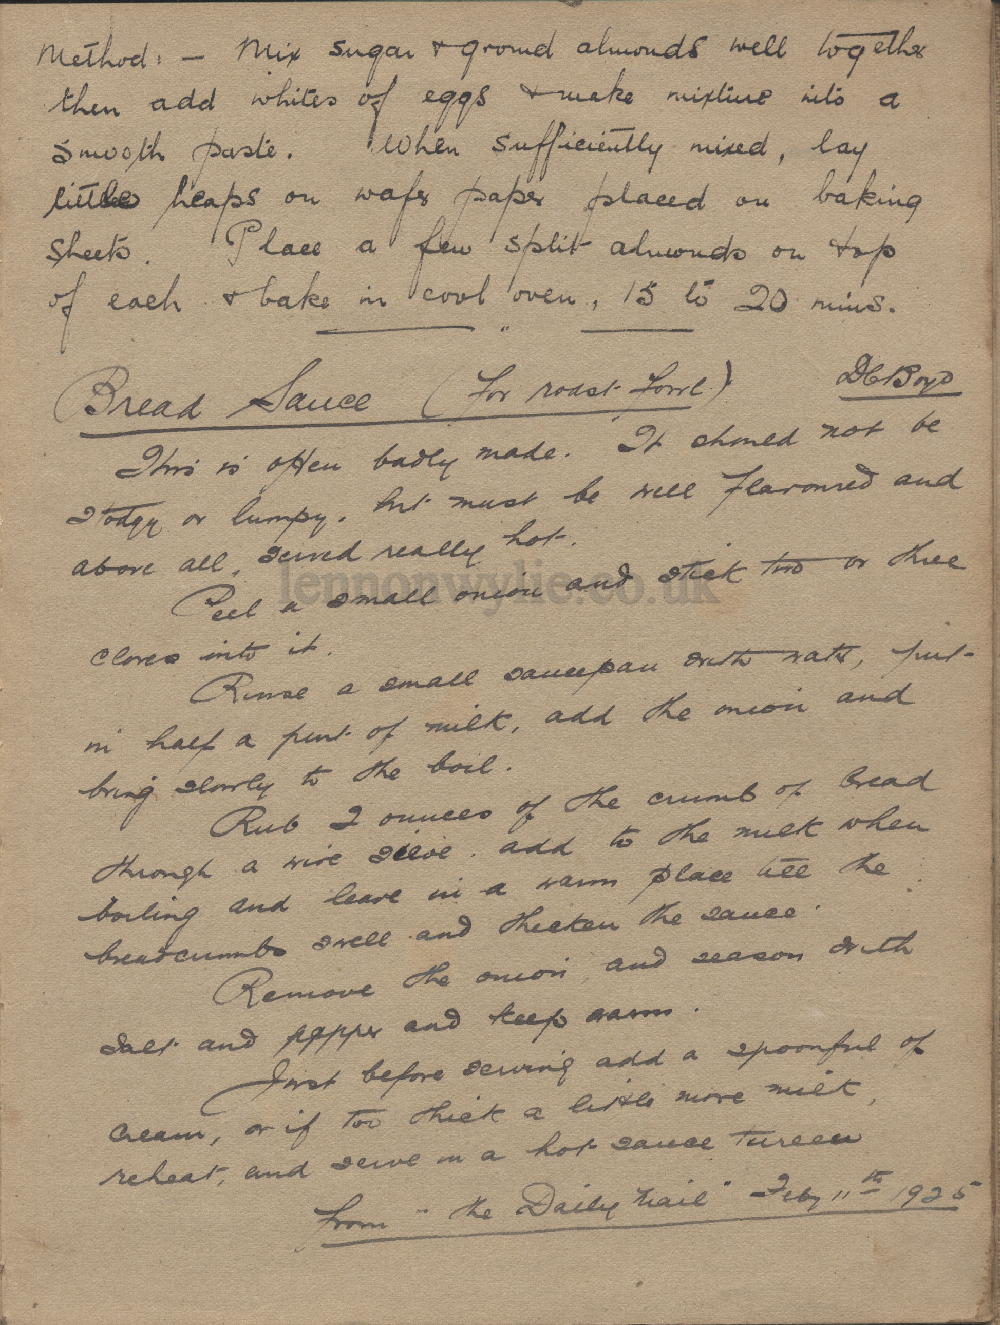 Method: — Mix sugar & ground almonds well together
then add whites of eggs & make mixture into a
smooth paste. When sufficiently mixed, lay
little heaps on wafer paper placed on baking
sheets. Place a few split almonds on top
of each & bake in cool oven, 15 to 20 mins.
Bread Sauce (For roast Fowl) D C Boyd
This is often badly made. It should not be
stodgy or lumpy, but must be well flavoured and
above all, served really hot.
lennonwylie.co.uk
Peel a small onion and stick two or three
cloves into it.
Rinse a small saucepan with water, put
in half a pint of milk, add the onion and
bring slowly to the boil.
Rub 2 ounces of the crumb of bread
through a wire sieve. add to the milk when
boiling and leave in a warm place till the
breadcrumbs swell and thicken the sauce.
Remove the onion, and season with
salt and pepper and keep warm.
Just before serving add a spoonful of
cream, or if too thick a little more milk,
reheat, and serve in a hot sauce tureen
from "the Daily Mail" Feby 11th 1925